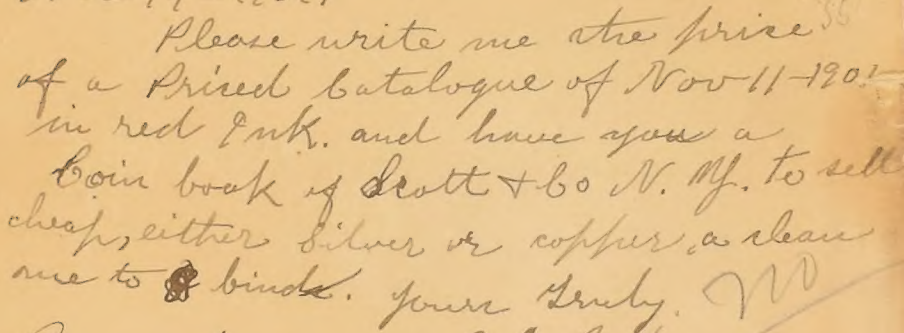 Please write me the price
of a Prised Catalogue of Nov 11-190
in red Ink. and have you a
Coin book of Scott + Co N. Y. to sell
cheap, either Silver or copper, a clean
one to bind. yours Truly.